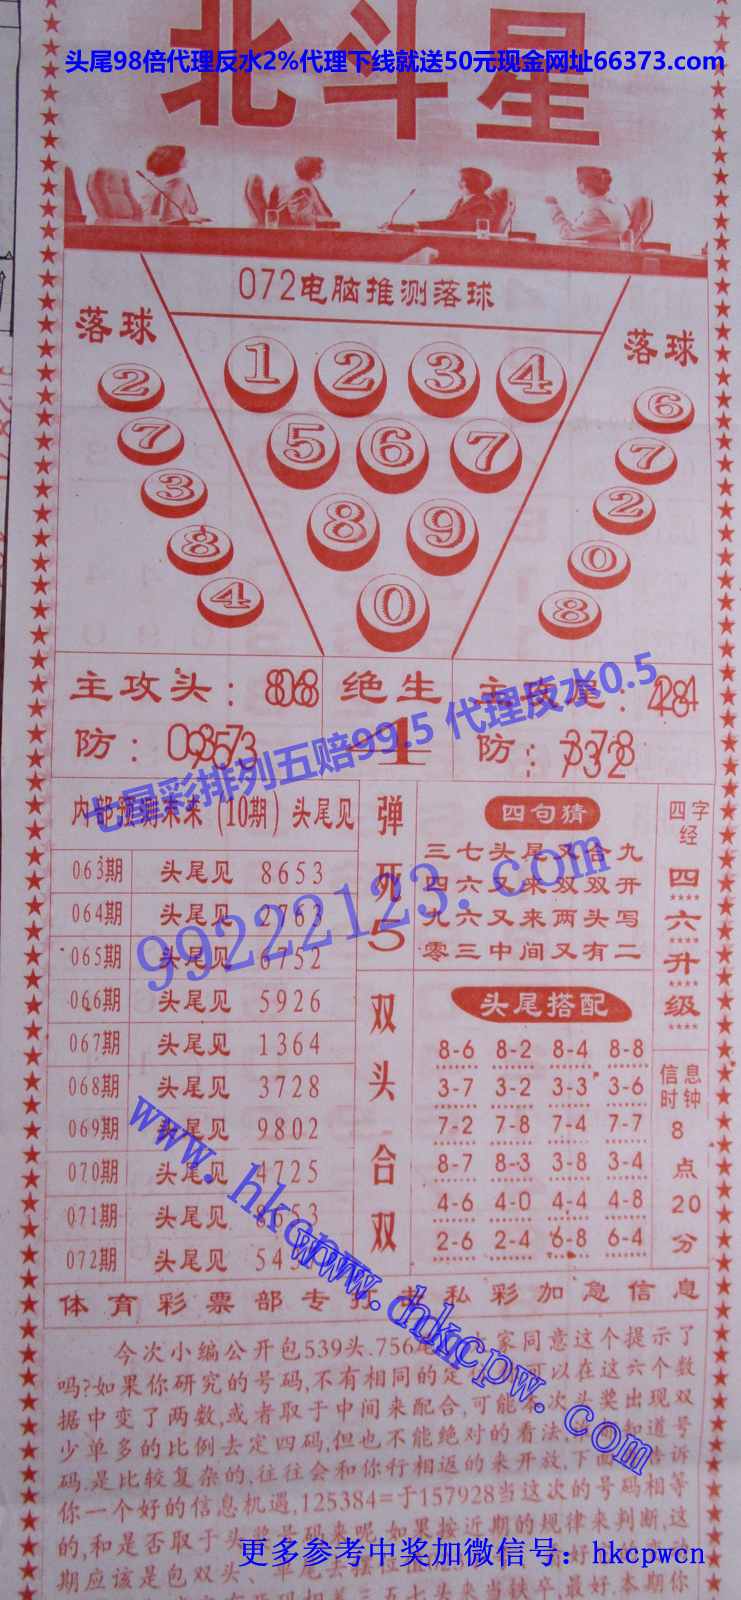 北斗星
头尾98倍代理反水2%代理下线就送50元现金网址66373.com
072电脑推测落球
落球
落球
1 2 3 4
5 6 7
8 9
0
2
7
3
8
4
6
7
2
0
8
主攻头:
绝生
4
防:
防:
七星彩排列五赔99.5 代理反水0.5
内部预测未来(10期)头尾见
063期 头尾见 8653
064期 头尾见 2763
065期 头尾见 6752
066期 头尾见 5926
067期 头尾见 1364
068期 头尾见 3728
069期 头尾见 9802
070期 头尾见 4725
071期 头尾见 8653
072期 头尾见
弹死5
双头合双
四句猜
三七头尾又合九
四六又来双双开
九六又来两头写
零三中间又有二
头尾搭配
8-6 8-2 8-4 8-8
3-7 3-2 3-3 3-6
7-2 7-8 7-4 7-7
8-7 8-3 3-8 3-4
4-6 4-0 4-4 4-8
2-6 2-4 6-8 6-4
四字经
四六升级
信息时钟
8点20分
99222123.com
www.hkcpw.com
www.hkcpw.com
体育彩票部专打 私彩加急信息
今次小编公开包539头.756 家同意这个提示了
吗?如果你研究的号码,不有相同的定 可以在这六个数
据中变了两数,或者取于中间来配合,可能本次头奖出现双
少单多的比例去定四码,但也不能绝对的看法, 知道号
码,是比较复杂的,往往会和你行相返的来开放,下面 告诉
你一个好的信息机遇,125384=于157928当这次的号码相等
的,和是否取于头奖 码来呢,如果按近期的规律来判断,这
期应该是包双头
更多参考中奖加微信号：hkcpwcn